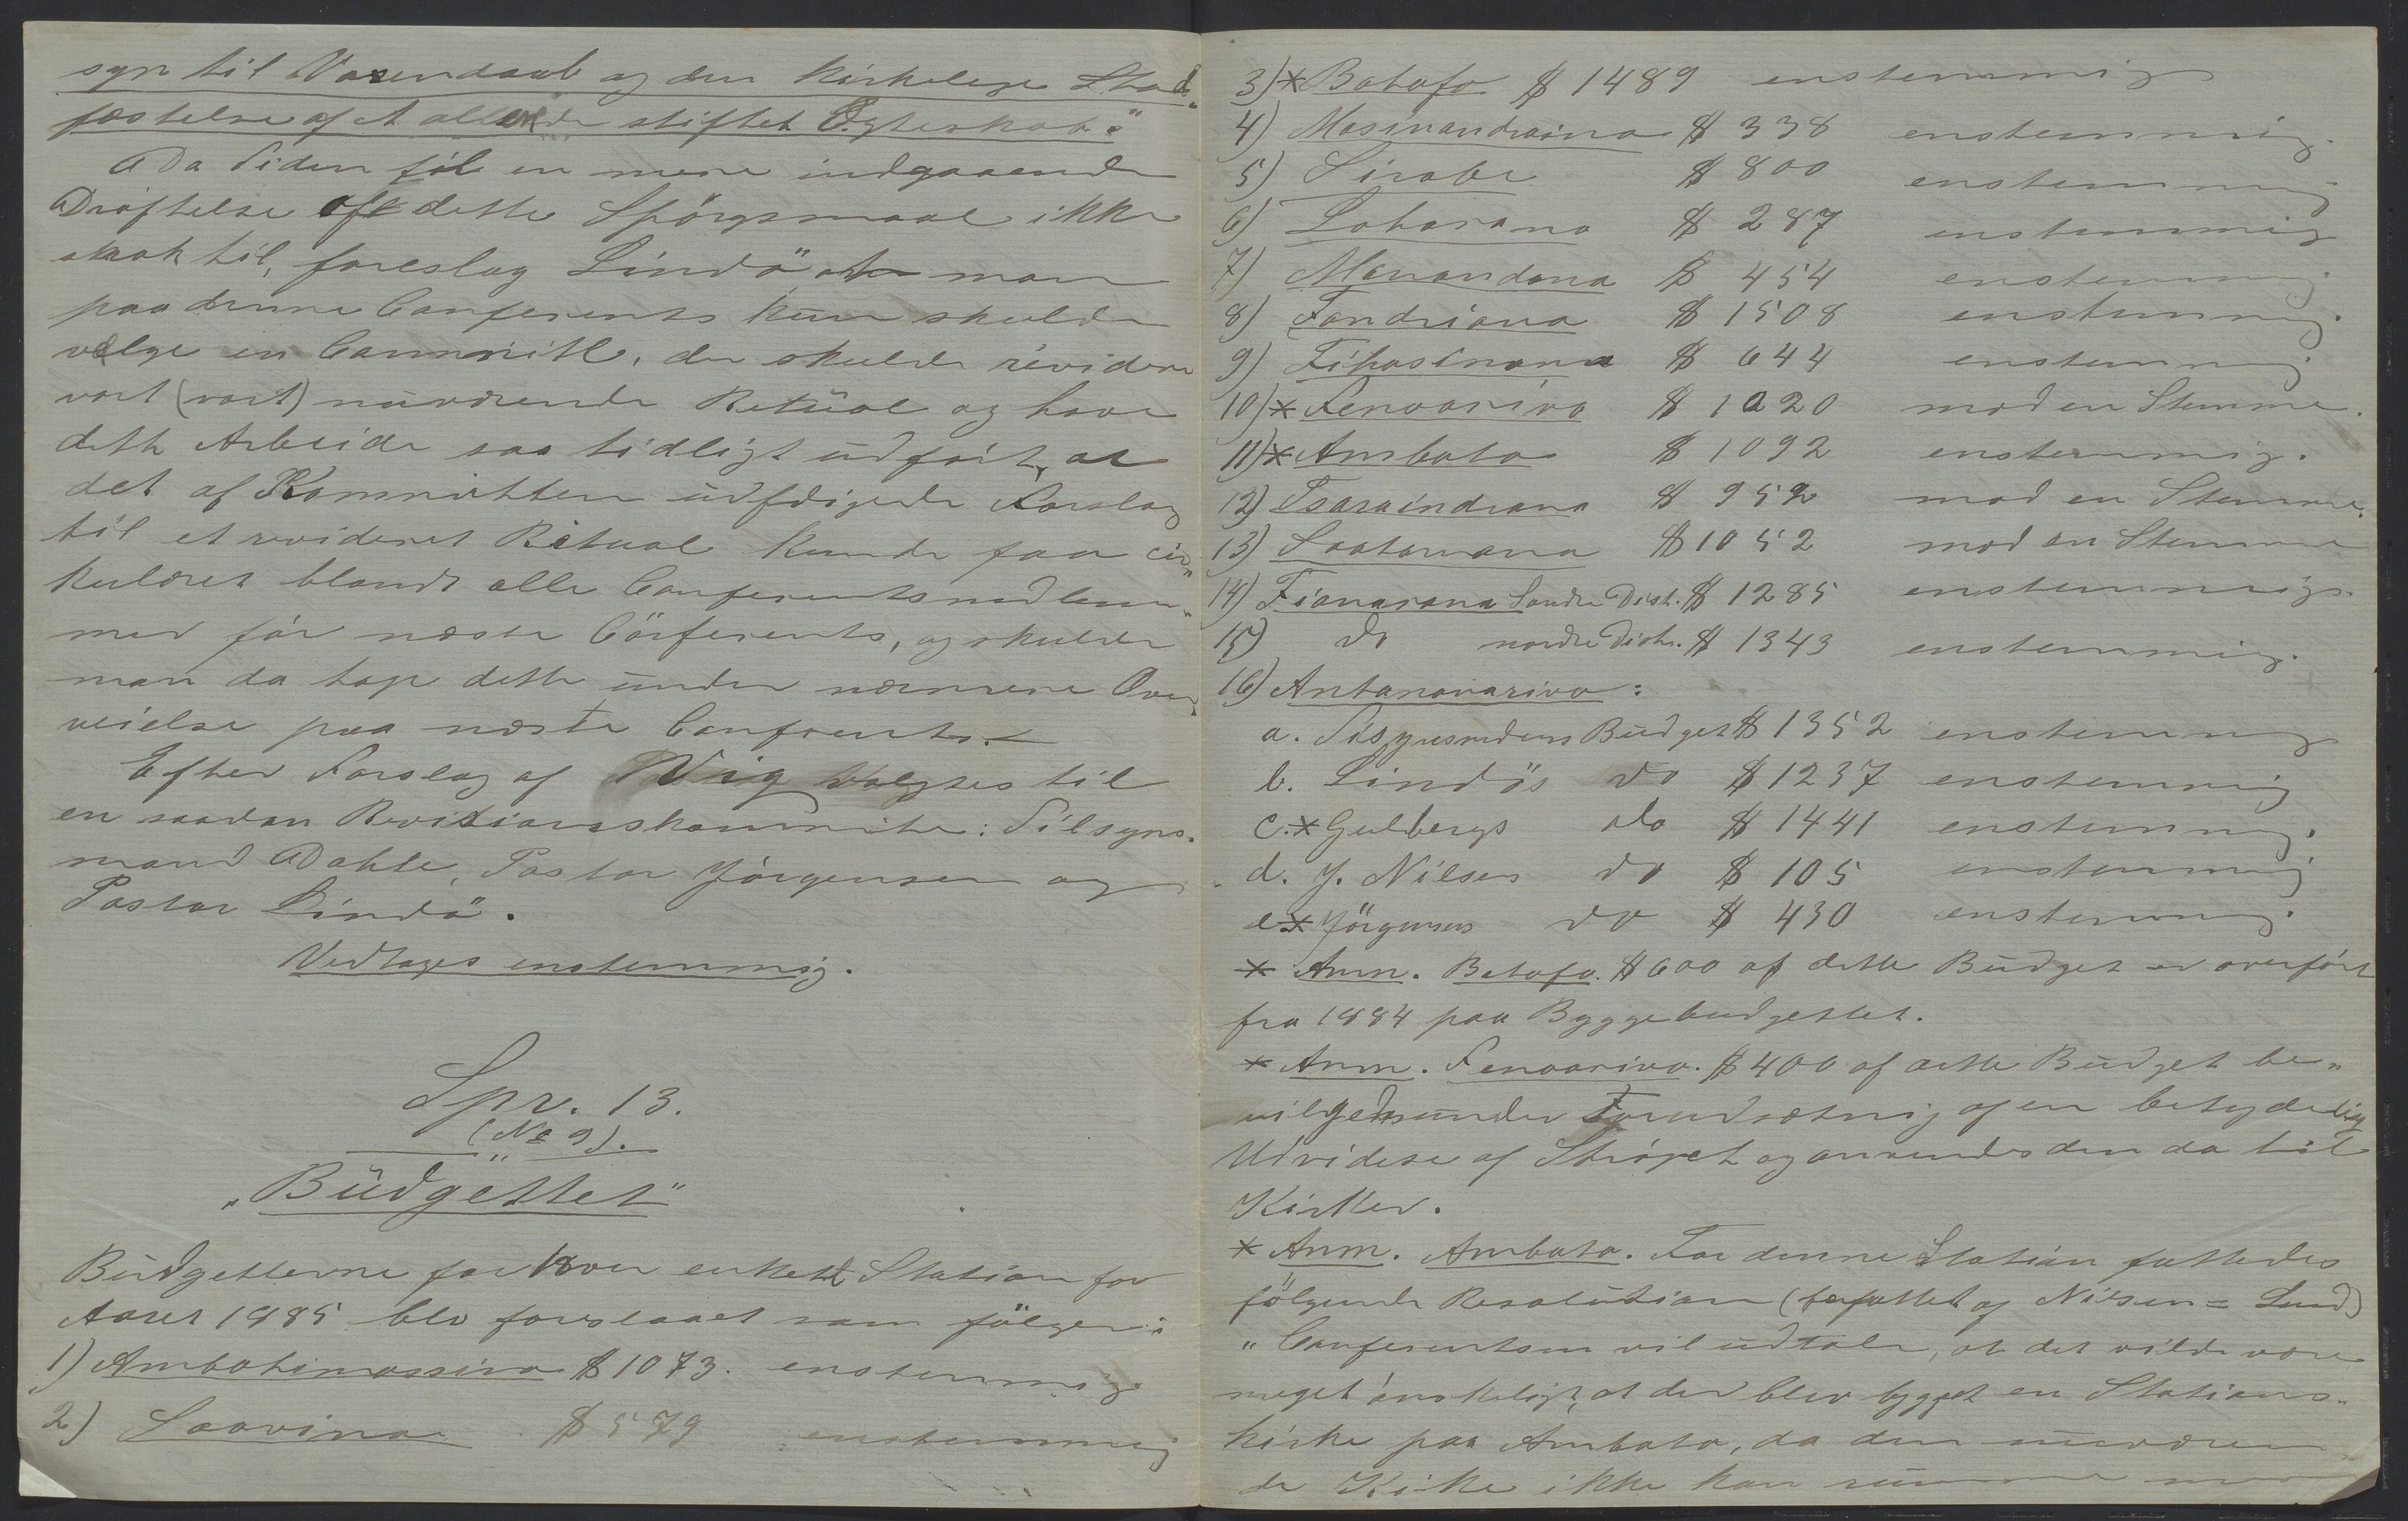 syn til Voxendaab og den kirkelige Stad„
fæstelse af et allerede stiftet Egteskab."
Da Tiden til en mere indgaaende
Drøftelse af dette Spörgsmaal ikke
strak til, foreslog Lindö, at man
paa denne Conferents kun skulde
vælge en Committe, der skulde revidere
vort (vort) nuværende Ritual og have
dette Arbeide saa tidligt udført, at
det af Kommitteen udfærdigede Forslag
til et revideret Ritual kunde faa cir„
kuleret blandt alle Conferentsmedlem„
mer før næste Conferents, og skulde
man da tage dette under nærmere Over„
veielse paa næste Conferents.
Efter Forslag af Vig valgtes til
en saadan Revisionskommite: Tilsyns„
mand Dahle, Pastor Jörgensen og
Pastor Lindö.
Vedtages enstemmig.
Spr. 13.
(No 9).
„Büdgettet"
Büdgetterne for hver enkelt Station for
Aaret 1885 blev foreslaaet som fölger:
1) Ambohimassina $ 1073. enstemmig
2) Soavina $ 579 enstemmig
3)* Betafo $ 1489 enstemmig
4) Masinandraina $ 338 enstemmig.
5) Sirabe $ 800 enstemmig
6) Loharano $ 287 enstemmig
7) Manandona $ 454 enstemmig.
8) Fandriana $ 1508 enstemmig.
9) Fihasinana $ 644 enstemmig.
10)* Fenoarivo $ 1020 mod en Stemme.
11)* Ambato $ 1092 enstemmig.
12) Tsaraindrana $ 952 mod en Stemme.
13) Soatanana $ 1052 mod en Stemme
14) Fianarana Søndre Dist. $ 1285 enstemmigs.
15) do nordre Distr. $ 1343 enstemmig.
16) Antananarivo:
a. Tilsynsmdens Büdget $ 1352 enstemmig
b. Lindös do $ 1237 enstemmig
c.* Gulbergs do $ 1441 enstemmig.
d. J. Nilsen do $ 105 enstemmig
e* Jörgensens do $ 430 enstemmig.
* Anm. Betafo. $ 600 af dette Büdget er overført
fra 1884 paa Byggebudgettet.
* Anm. Fenoarivo. $ 400 af dette Büdget be„
vilgedes under Forudsætnig af en betydelig
Udvidese af Strøget og anvendes den da til
Kirker.
* Anm. Ambato. For denne Station fattedes
fölgende Resolution (forfattet af Nilsen=Lund)
„Conferentsen vil udtale, at det vilde være
meget ønskeligt, at der blev bygget en Stations„
kirke paa Ambato, da den nuværen„
de Kirke ikke kan rumme